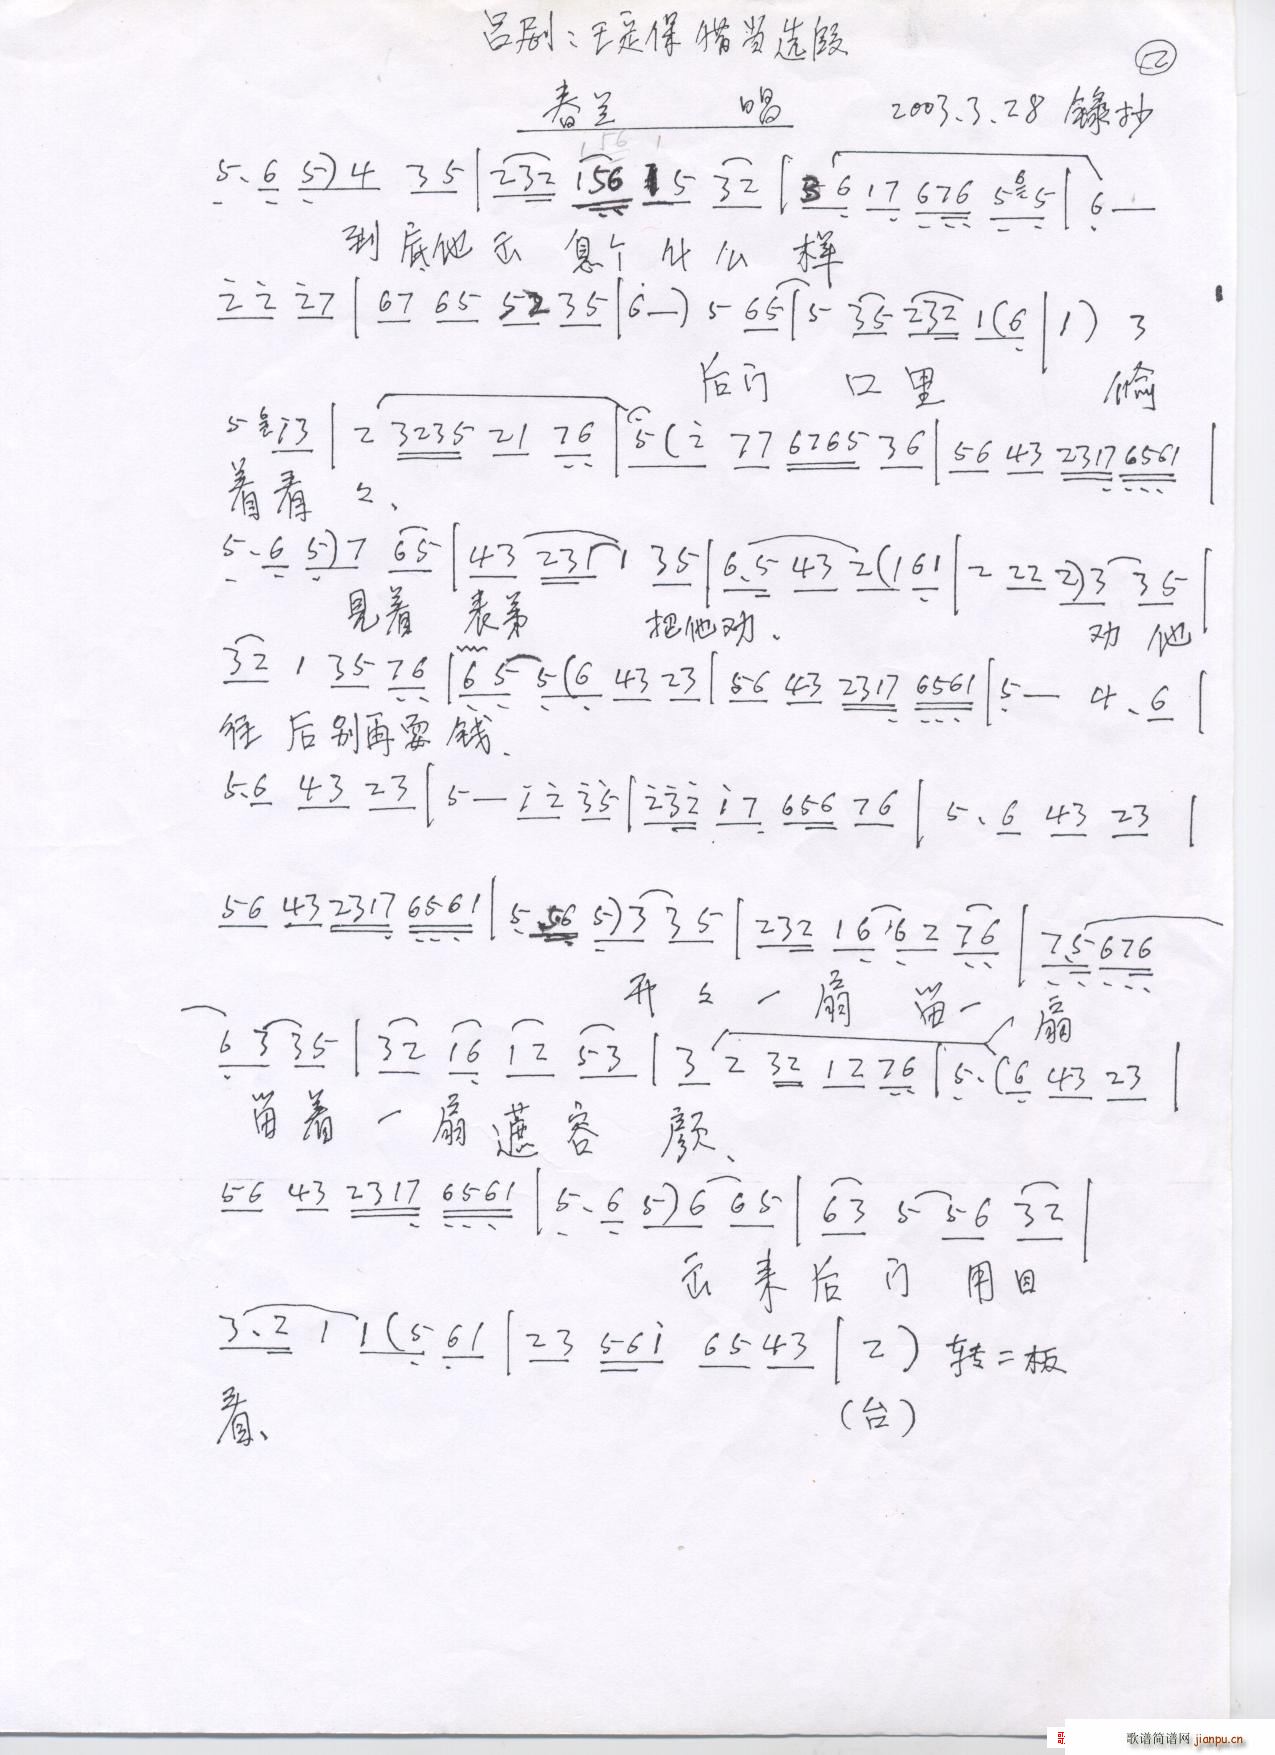 吕剧:王定保借当选段
②
春兰 唱 2003.3.28 錄抄
5. 6 5) 4 35 | 232 156 15 32 | 36 17 676 5 5 | 6 —
到底他 是个什么样
2 2 27 | 67 65 52 35 | 6 —) 5 65 | 5 35 232 1(6 | 1) 3
后门 口里 偷
5 13 | 2 3235 21 76 | 5 (2 77 6765 36 | 56 43 2317 6561 |
着看々、
5. 6 5) 7 65 | 43 231 1 35 | 6.5 43 2(1 61 | 2 22 2) 3 35 |
見着 表弟 把他劝. 劝他
32 1 35 76 | 6 5 5(6 43 23 | 56 43 2317 6561 | 5 — 4. 6 |
往后别再耍钱.
5.6 43 23 | 5 — 12 35 | 232 17 656 76 | 5. 6 43 23 |
56 43 2317 6561 | 5 56 5) 3 35 | 232 16 62 76 | 7.5 676
开々一扇 留一扇
6 3 35 | 32 16 12 53 | 3 2 32 12 76 | 5.(6 43 23 |
留着一扇遮容颜、
56 43 2317 6561 | 5. 6 5) 6 65 | 63 5 56 32 |
出来后门用目
3.2 1 1(5 61 | 23 561 65 43 | 2) 转二板
看、 (台)
歌谱简谱网 jianpu.cn